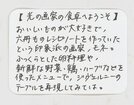 【光の風景の食卓へようこそ】
おいしいものが大好きで、
六冊ものレシピノートを作っていた
という印象派の画家、モネ。
ふっくらとした卵料理や、
新鮮な野菜、鶏、ハーブなどを
使ったメニューで、ジヴェルニーの
テーブルを再現しています。